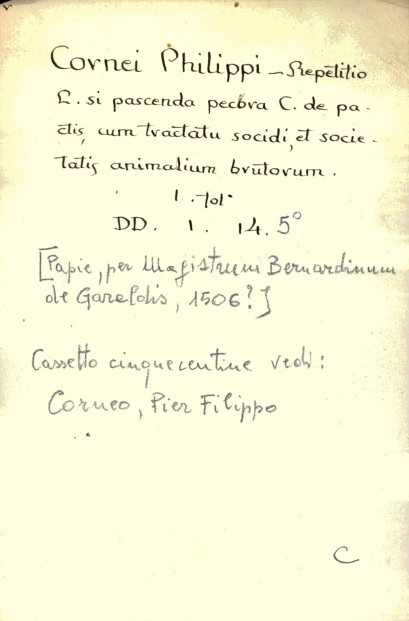 Cornei Philippi - Repetitio
L. si pascenda pecora C. de pa-
ctis, cum tractatu socidi, et socie-
tatis animalium brutorum.
1. fol.
DD. 1. 14. 5°
[Papie, per Magistrum Bernardinum
de Garaldis, 1506?]
Cassetto cinquecentine vedi:
Corneo, Pier Filippo
C